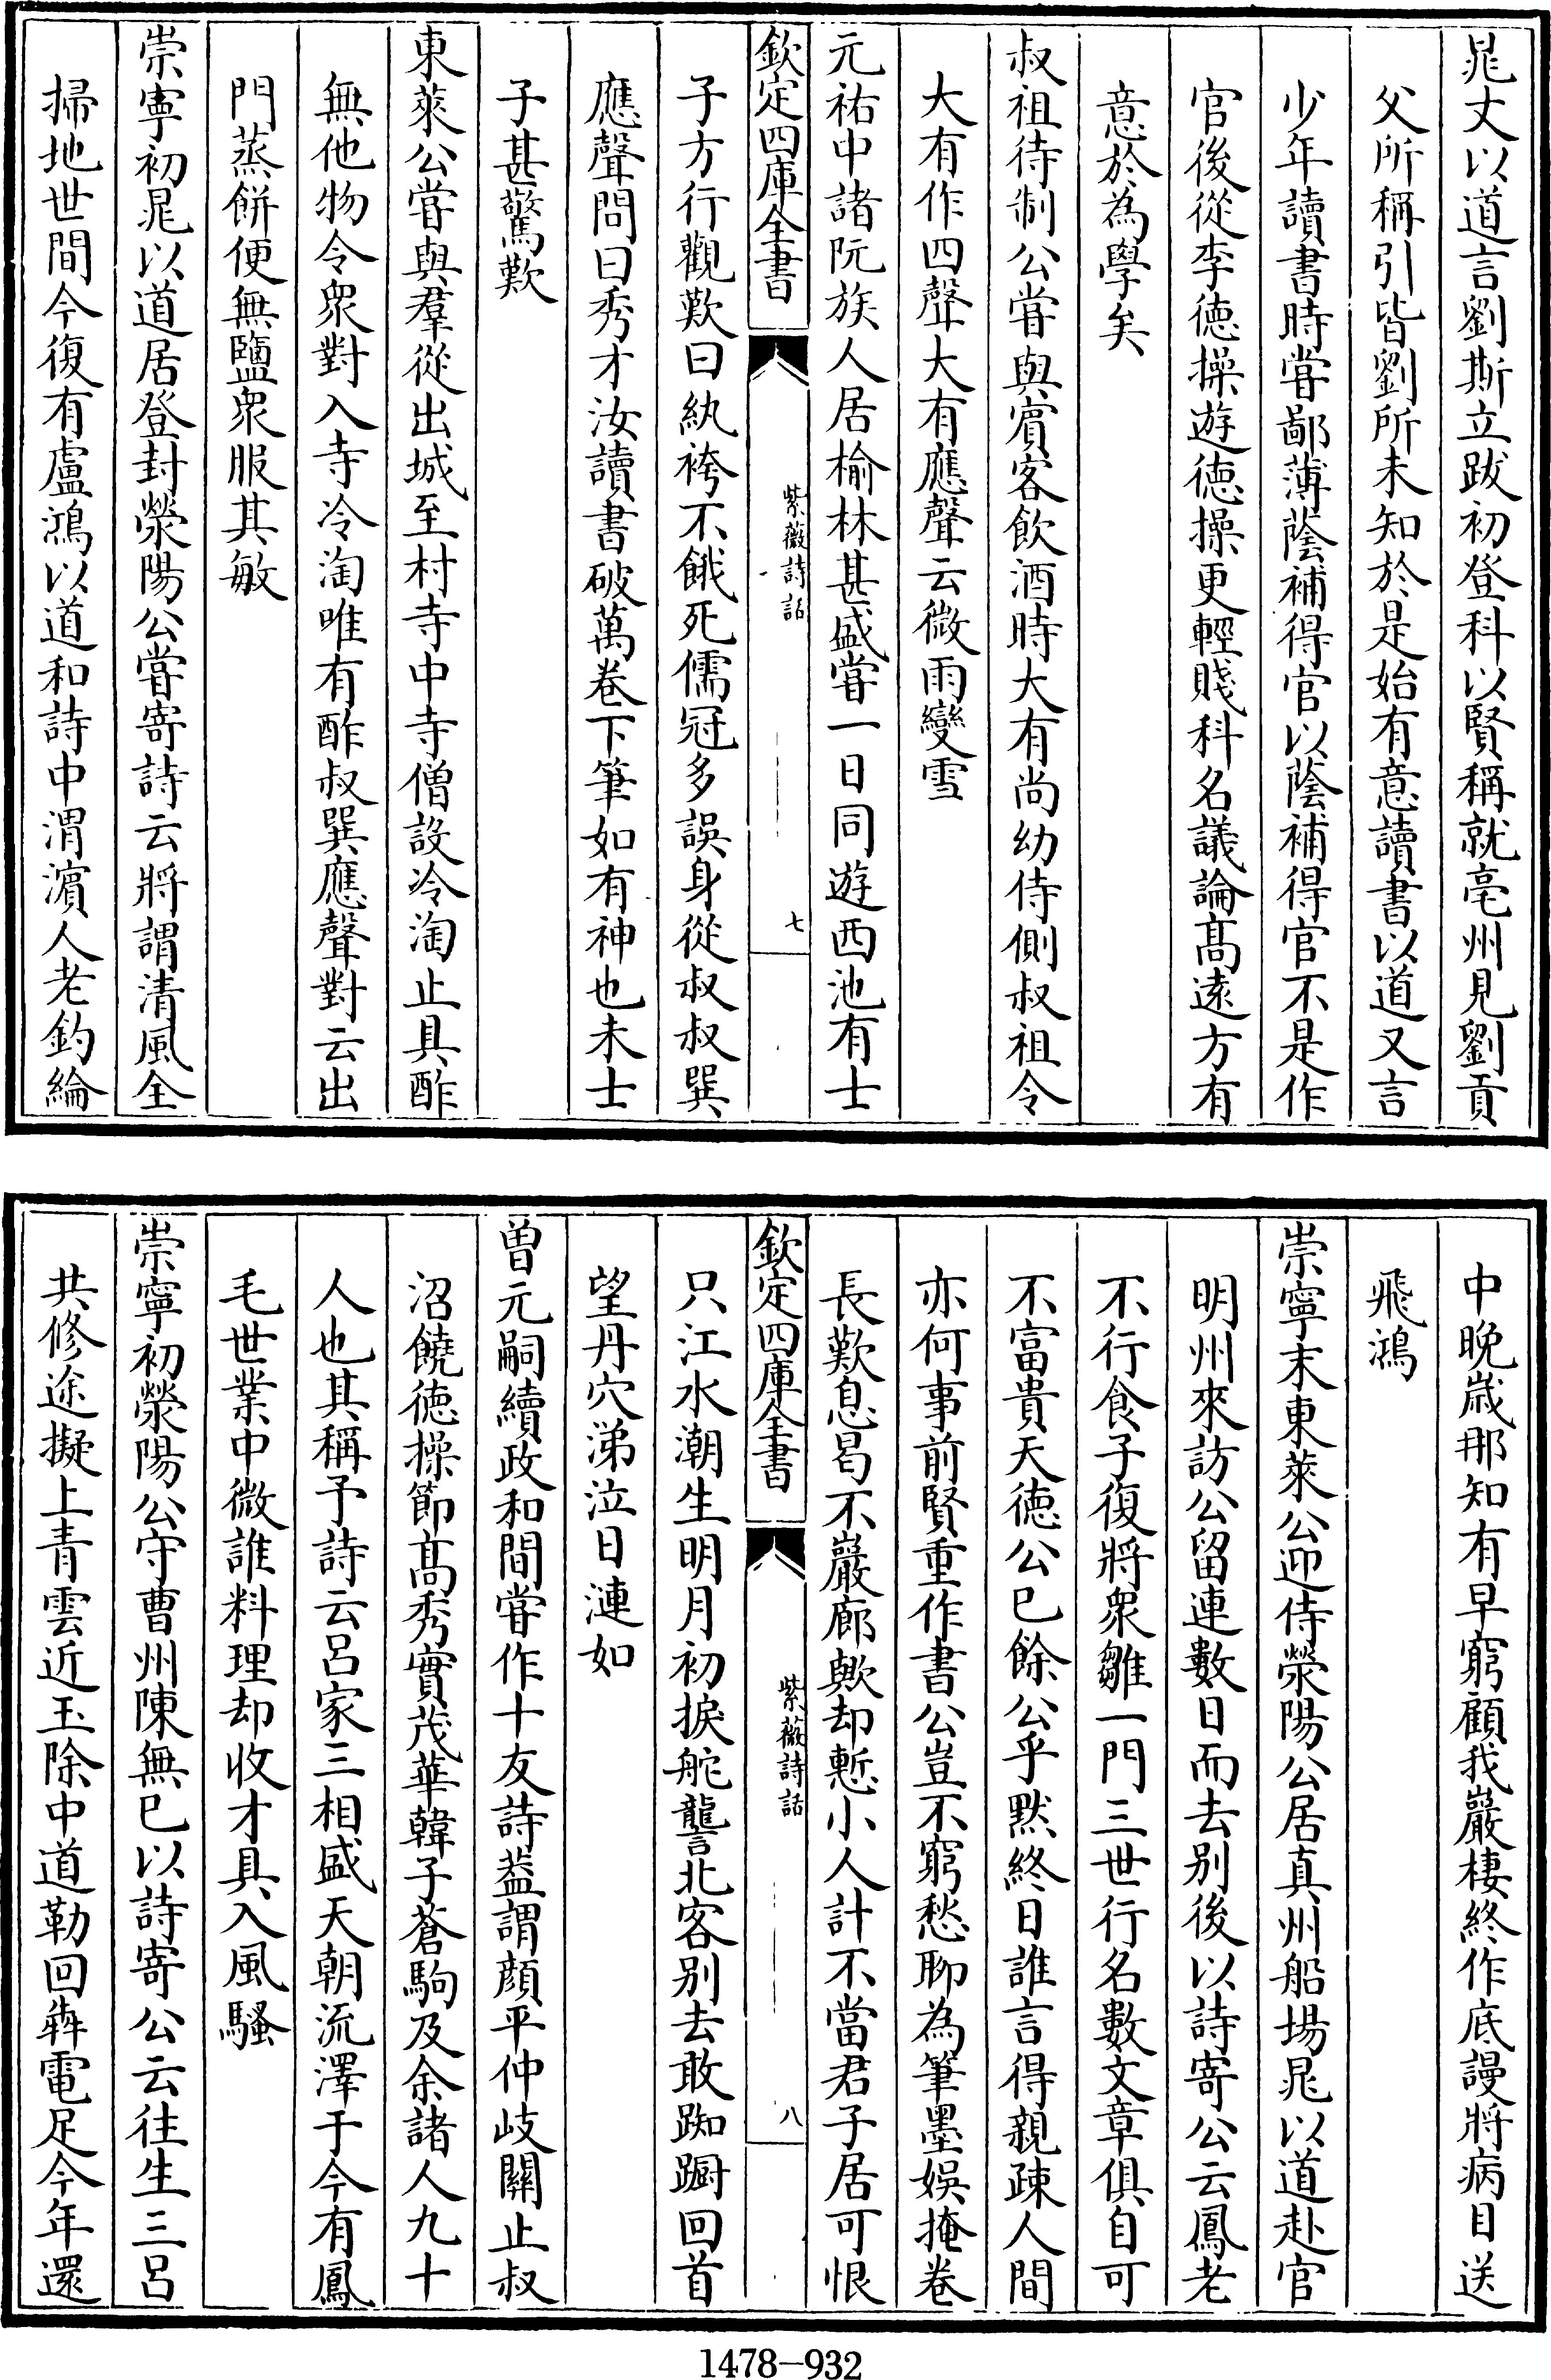 晁丈以道言劉斯立跋初登科以賢稱就亳州見劉貢
父所稱引皆劉所未知於是始有意讀書以道又言
少年讀書時嘗鄙薄蔭補得官以蔭補得官不是作
官後從李徳操遊徳操更輕賤科名議論髙逺方有
意於為學矣
叔祖待制公嘗與賔客飲酒時大有尚幼侍側叔祖令
大有作四聲大有應聲云微雨變雪
元祐中諸阮族人居榆林甚盛嘗一日同遊西池有士
欽定四庫全書
紫薇詩話
七
子方行觀歎曰紈袴不餓死儒冠多誤身從叔叔巽
應聲問曰秀才汝讀書破萬卷下筆如有神也未士
子甚驚歎
東萊公嘗與羣從出城至村寺中寺僧設冷淘止具酢
無他物令衆對入寺冷淘唯有酢叔巽應聲對云出
門蒸餅便無鹽衆服其敏
崇寜初晁以道居登封滎陽公嘗寄詩云將謂清風全
掃地世間今復有盧鴻以道和詩中渭濵人老釣綸
中晩嵗那知有早窮顧我巖棲終作底謾將病目送
飛鴻
崇寧末東萊公迎侍滎陽公居真州船塲晁以道赴官
明州來訪公留連數日而去别後以詩寄公云鳳老
不行食子復將衆雛一門三世行名數文章俱自可
不富貴天徳公已餘公乎黙終日誰言得親疎人間
亦何事前賢重作書公豈不窮愁聊為筆墨娱掩卷
長歎息曷不巖廊歟却慙小人計不當君子居可恨
欽定四庫全書
紫薇詩話
八
只江水潮生明月初捩舵讋北客别去敢踟蹰回首
望丹穴涕泣日漣如
曽元嗣續政和間嘗作十友詩葢謂顔平仲岐闗止叔
沼饒徳操節髙秀實茂華韓子蒼駒及余諸人九十
人也其稱予詩云呂家三相盛天朝流澤于今有鳳
毛世業中微誰料理却收才具入風騷
崇寧初滎陽公守曹州陳無已以詩寄公云往生三呂
共修途擬上青雲近玉除中道勒回犇電足今年還
1478-932